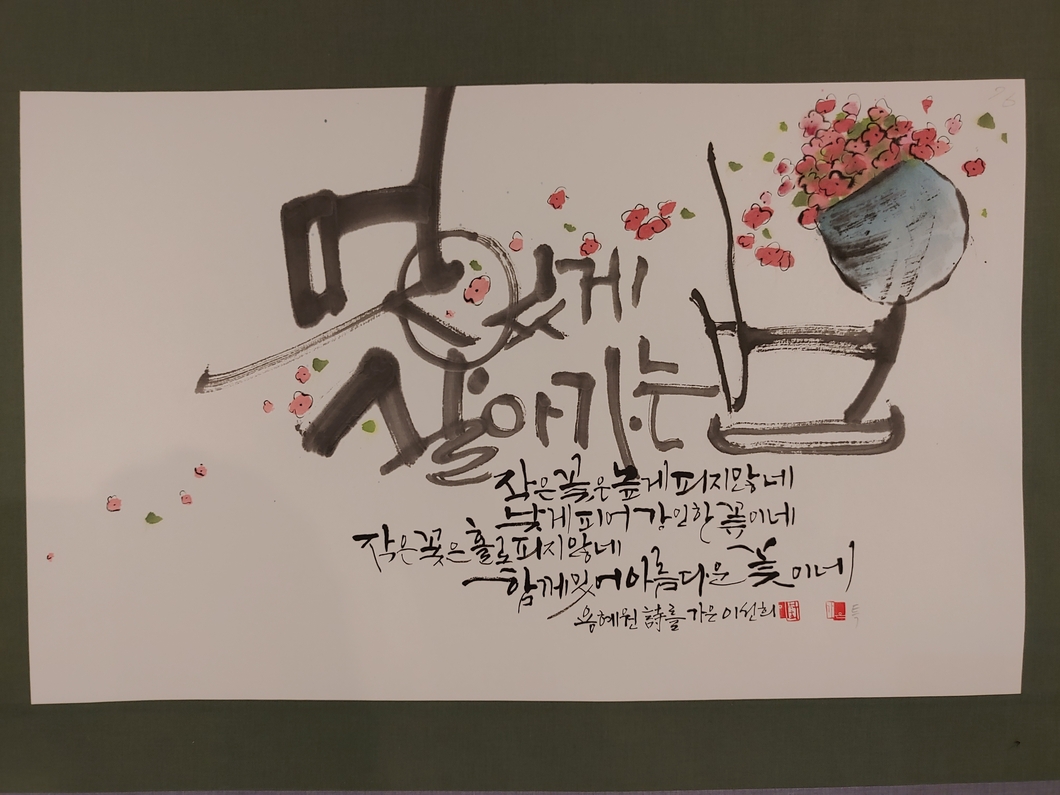 멋있게
살아가는 법
작은 꽃은 높게 피지 않네
낮게 피어 강인한 꽃이네
작은 꽃은 홀로 피지 않네
함께 있어 아름다운 꽃이네
용혜원 詩를 가은